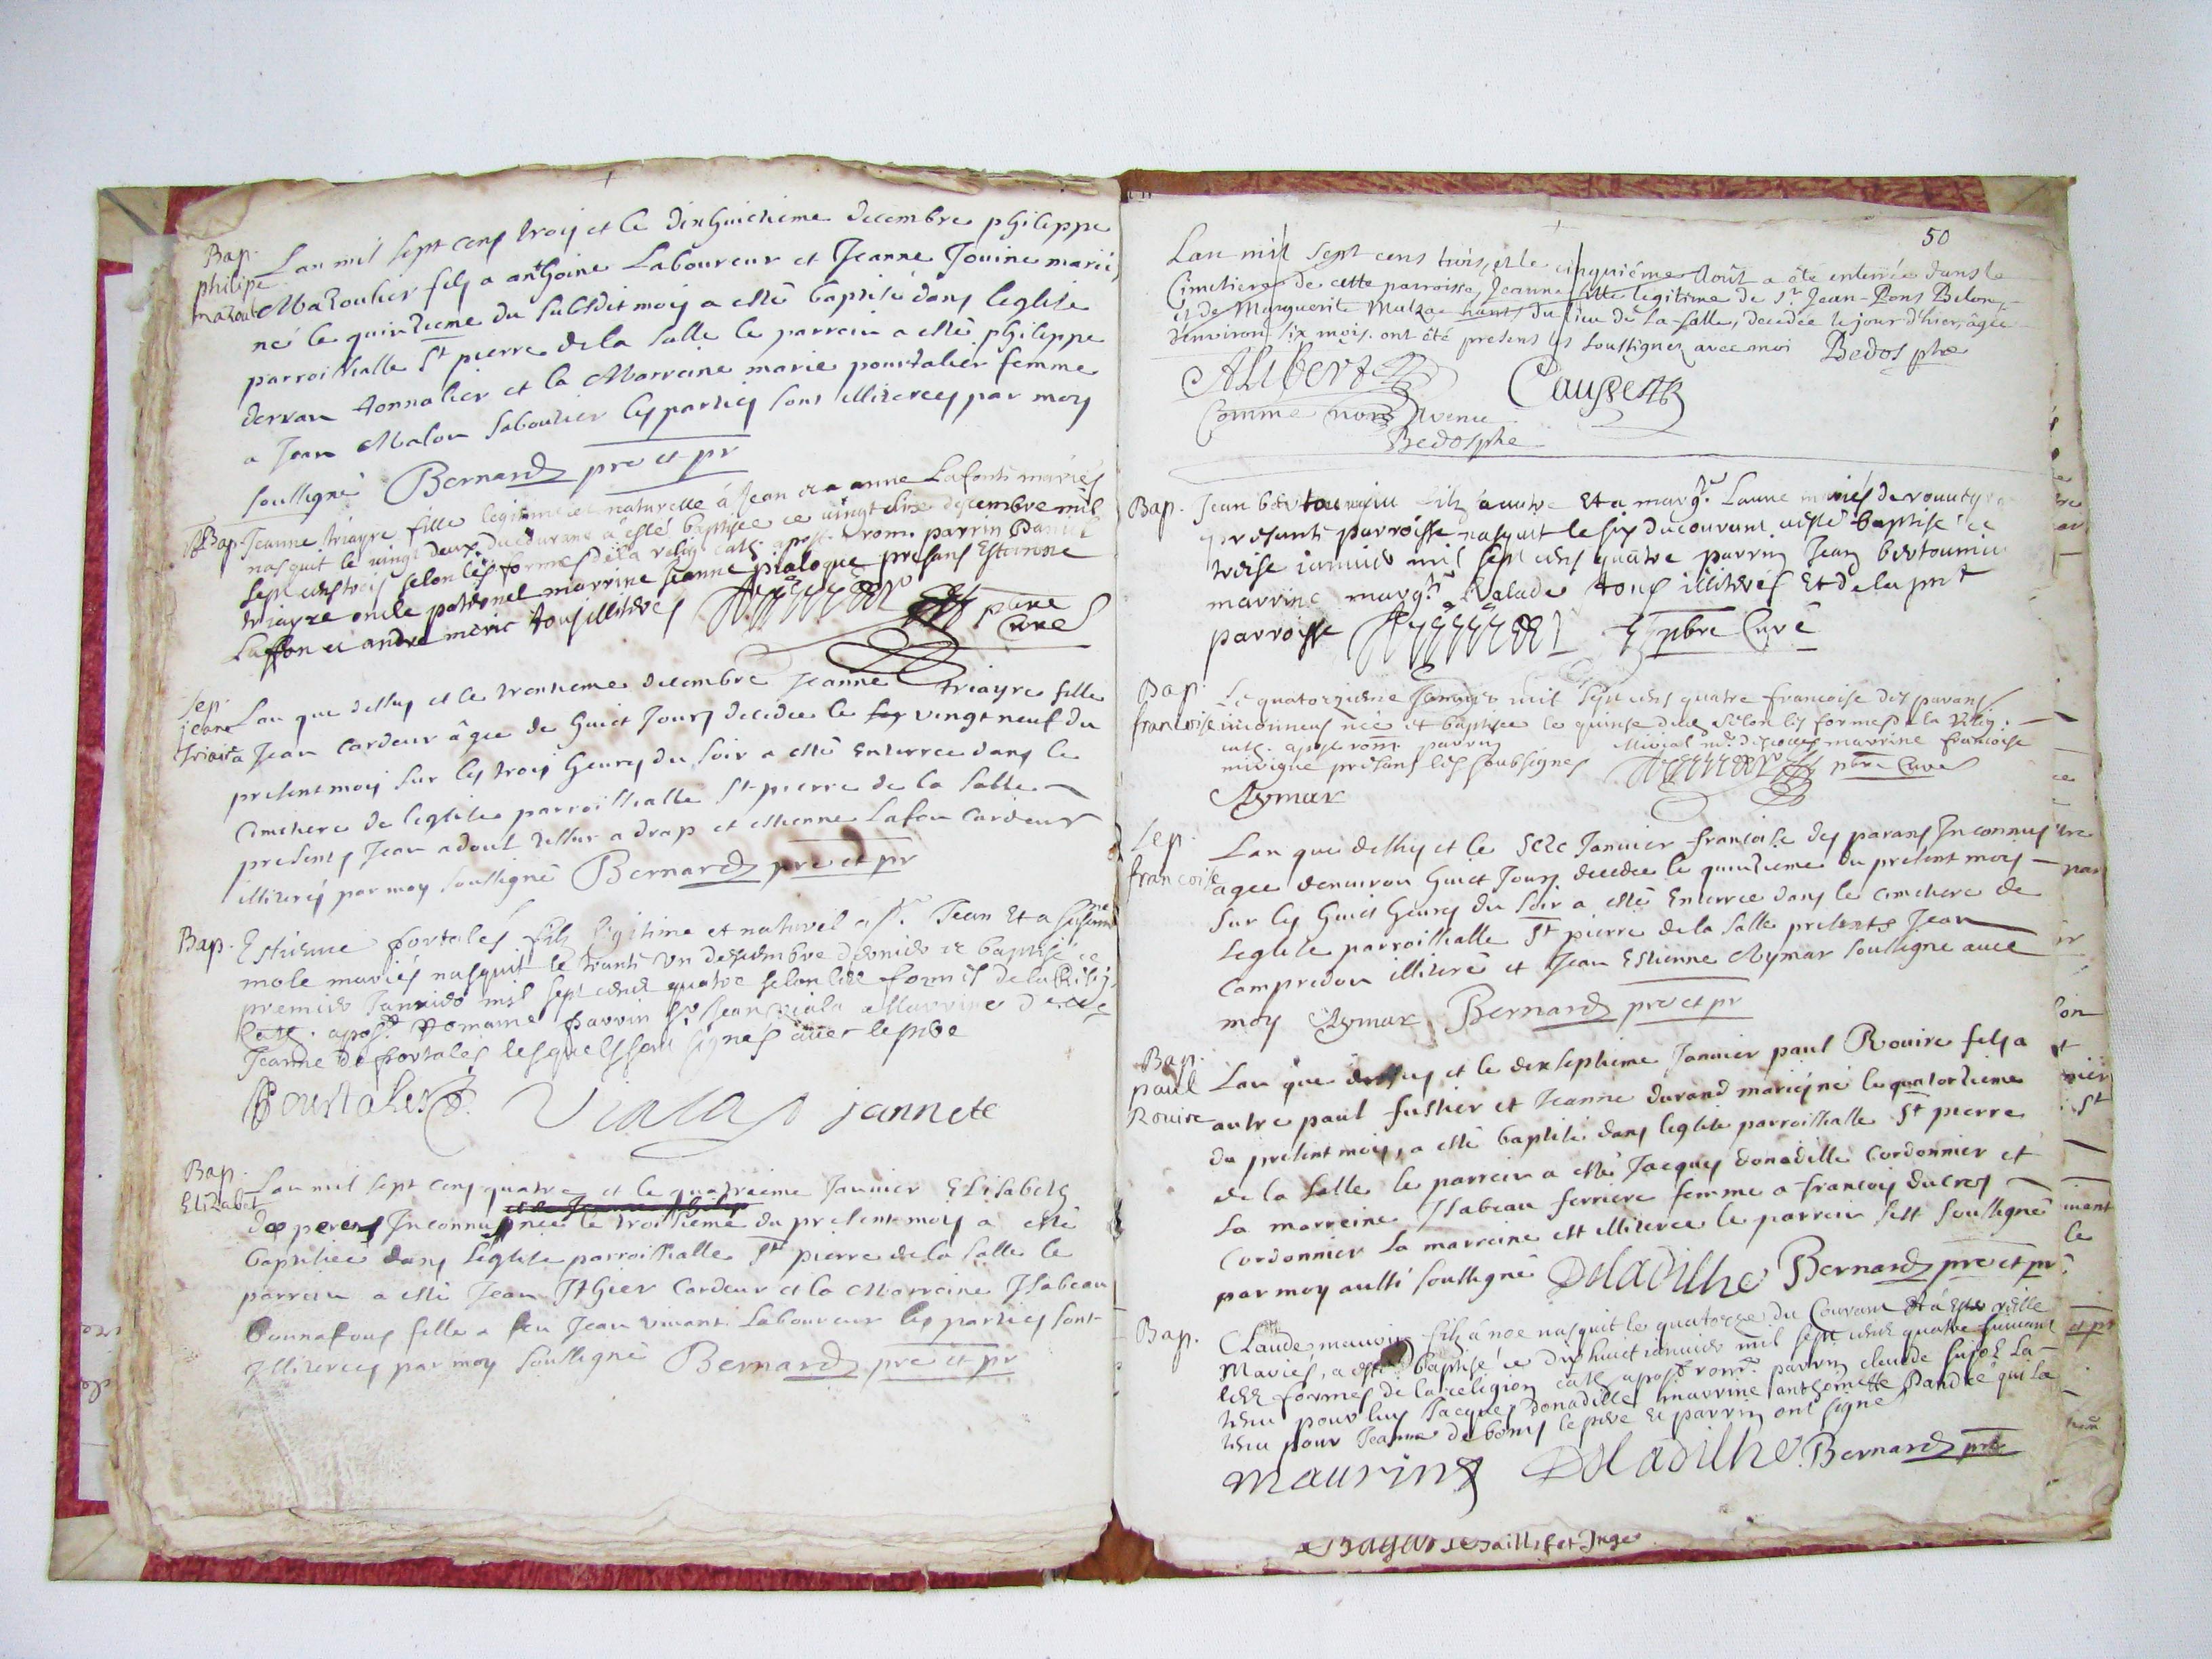 Bap.
philipe
mazouli
Lan mil sept cens trois et le dixhuictieme decembre philippe
Mazoulier fils a anthoine Laboureur et Jeanne Jouine mariés
né le quinzieme du subsdit mois a esté baptisé dans leglise
parroissialle St pierre dela salle le parrein a esté philippe
dervau tonnalier et la Marreine marie pourtalier femme
a Jean Malou saboutier les parties sont illiterees par moy
soussigné Bernard pre et pr
Bap. Jeanne triayre fille legitime et naturelle à Jean et a anne Lafonts mariés
nasquit le vingt deux du courant a esté baptisee ce vingt six decembre mil
sept cens trois selon les formes de la relig. cath. apost. rom. parrin Daniel
triayre oncle paternel marrine Jeanne pialogue presans Estienne
Laffon et andre meric tous illiteres
pbre
Curé
Sep.
jeane
triaire
Lan que dessus et le trentieme decembre Jeanne triayre fille
a Jean Cardeur âgee de huict Jours decedee le vingt neuf du
present mois sur les trois heures du soir a esté Enterree dans le
Cimetiere de leglise parroissialle St pierre de la salle
presents Jean adout tissur a drap et estienne Lafon Cardeur
illiterés par moy soussigné Bernard pre et pr
Bap. Estienne portalés filz legitime et naturel a sr. Jean Et a susanne
mole mariés nasquit le trante un decembre dernier et baptisé ce
premier Janvier mil sept cens quatre selon les formes de la Relig.
Cath. apost. Romaine parrin sr Jean viala Marrine d.elle
Jeanne de portalés lesquels sont signés avec le pere
Pourtales
Viala jannete
Bap.
Elizabet
Lan mil sept cens quatre et le quatrieme Janvier Elisabeth
de perens Inconnus née le troisieme du present mois a esté
baptisée dans leglise parroissialle St pierre de la salle le
parrein a esté Jean Ithier Cardeur et la Marreine Isabeau
Bonnafous fille a feu Jean vivant Laboureur les parties sont
Illiterees par moy soussigné Bernard pre et pr
50
Lan mil sept cens trois, et le cinquiéme Août a été enterrée dans le
Cimetiere de cette parroisse, Jeanne fille legitime de sr. Jean-Pons Belon
et de Marguerite Malzac du lieu de La-salle, decedée le jour d'hier, âgée
d'environ six mois. ont été presens les soussignez avec moi Bedos pbre
Alibert
Causse
Comme non avenu
Bedos pbre
Bap. Jean bertoumiu filz a autre Et a margte. Laune mariés de
presante parroisse nasquit le six du courant a esté baptisé ce
treise janvier mil sept cens quatre parrin Jean bertoumiu
marrine margte. Valade tous illiterés Et de la pnt
parroisse pbre Curé
Bap.
francoise
Le quatorzieme Janvier mil sept cens quatre francoise des parans
inconneus née et baptisee le quinse dud. selon les formes de la Relig.
cath. apost. rom. parrin marrine francoise
presans les soubsignes pbre Curé
Aymar
Sep.
francoise
Lan que dessus et le seze Janvier francoise des parans Inconnus
agee denuiron huict Jours decedee le quinzieme du present mois
sur les huict heures du soir a esté Enterree dans le Cimetiere de
Leglise parroissialle St pierre de la salle presents Jean
Compredon illiteré et Jean Estienne Aymar soussigné avec
moy Aymar Bernard pre et pr
Bap.
paul
Rouire
Lan que dessus et le dixseptieme Janvier paul Rouire fils a
autre paul fustier et Jeanne durand mariés né le quatorzieme
du present mois, a esté baptisé dans leglise parroissialle St pierre
de la salle le parrein a esté Jacques donadille Cordonnier et
la marreine Isabeau ferriere femme a francois ducros
Cordonnier la marreine est illiteree le parrein sest soussigné
par moy aussi soussigné Doladilhe Bernard pre et pr
Bap. Claude maurin filz á noe nasquit le quatorze du Courant
Mariés, a esté baptisé ce dix huict janvier mil sept cens quatre suivant
les formes de la religion cath. apost. rom. parrin claude
tenu pour luy Jacques donadille marrine anthoinette Dandré qui la
tenu pour Jeanne debous le pere Et parrin ont signé
Maurin Doladilhe Bernard pre